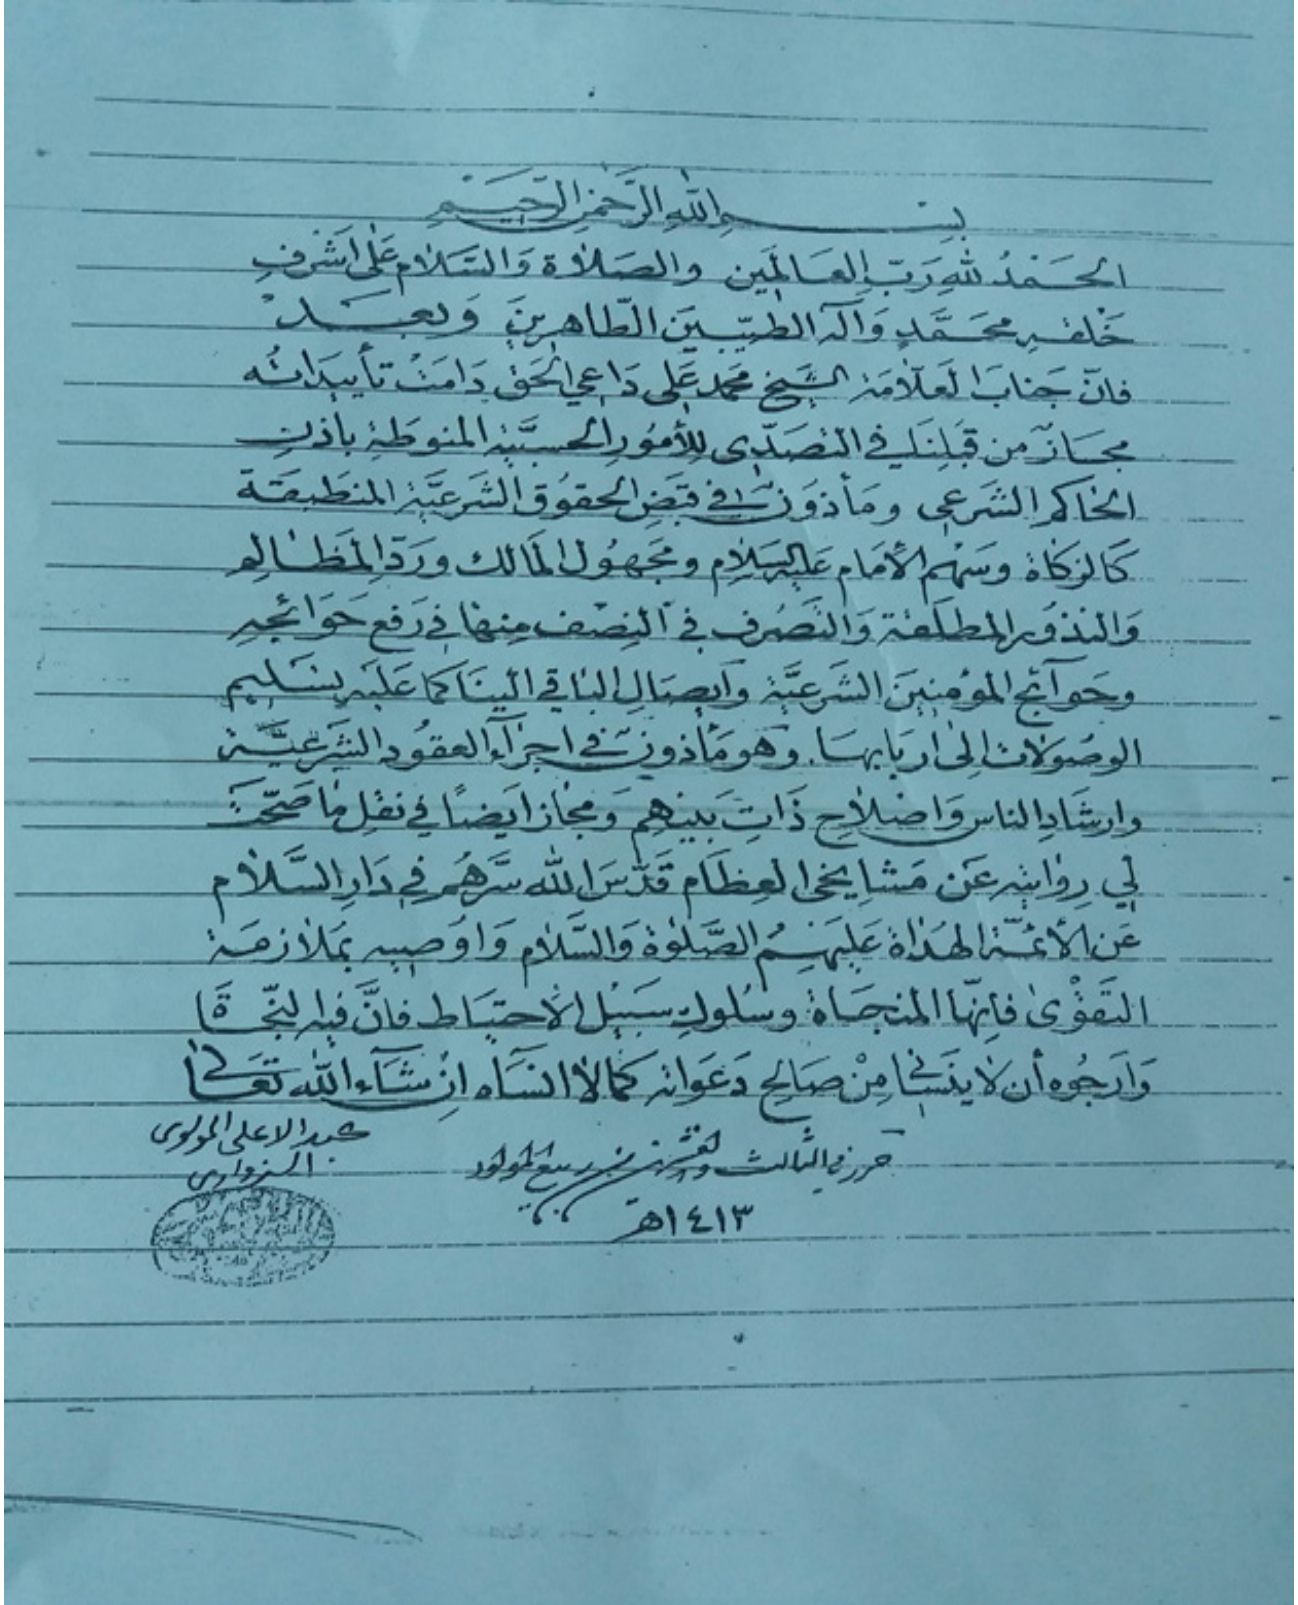 بِسْمِ اللهِ الرَّحْمٰنِ الرَّحِيْمِ
الحَمْدُ للهِ رَبِّ العَالَمِين والصَلاٰة وَالسَّلاٰم عَلٰى اَشْرَفِ
خَلقهِ محَمَّدٍ وَآله الطيّبيِنَ الطّاهِرينَ وَبعَـدْ
فانّ جنَابَ العَلاّمَة الشيخ محمّد عَلي دَاعي الحَق دَامَتْ تأييدَاتُه
مجَازٌ من قبَلِنَا في التصَدّى لِلأمُورِ الحسبيَّة المنوطَةِ باذنِ
الحَاكم الشَرعي ومَأذوَنٌ في قبَضِ الحقوُق الشَرعيَّة المنطَبقَة
كَالزكاة وسَهْم الأمَام عَليه السَلاٰم ومجَهوُل المَالك ورَدّ المَظَالم
وَالنذوُر المطلَقة وَالتَصَرف في النِصْف مِنها في رَفع حَوائجه
وحَوآئج المؤمنينَ الشَرعيَّة وَايصَالِ الباقي الَينَا كما عَليَه بتسَليم
الوصُولات الىٰ اربَابهَا. وَهو مَأذوُنٌ في اجرآء العقوُد الشَرعيَّة
وارشَادِ الناس وَاصْلاٰحِ ذَاتِ بَينهم وَمجاز ايَضًا في نقل ما صَحّتَ
لي رِوايته عَن مَشايخى العِظَام قَدّسَ الله سَرهُم في دَارِ السَّلاٰم
عَن الأئمّة الهُدَاة عَليهَمُ الصَّلوٰة وَالسَّلاٰم وَاوُصيه بمَلازمَة
التقَوْىٰ فاِنهّا المنجَاة وسُلوكِ سَبيْل الأحتيَاط فانَّ فيه النجّاة
وَارجُوه أن لاٰ ينسَانى مِنْ صَالح دَعَواته كمَا لاٰ انسَاه اِنْ شَآء الله تعَالىٰ
عبد الاعلى الموسوى
السبزوارى
حرر في الثالث والعشرين من ربيع المولود
١٤١٣هـ